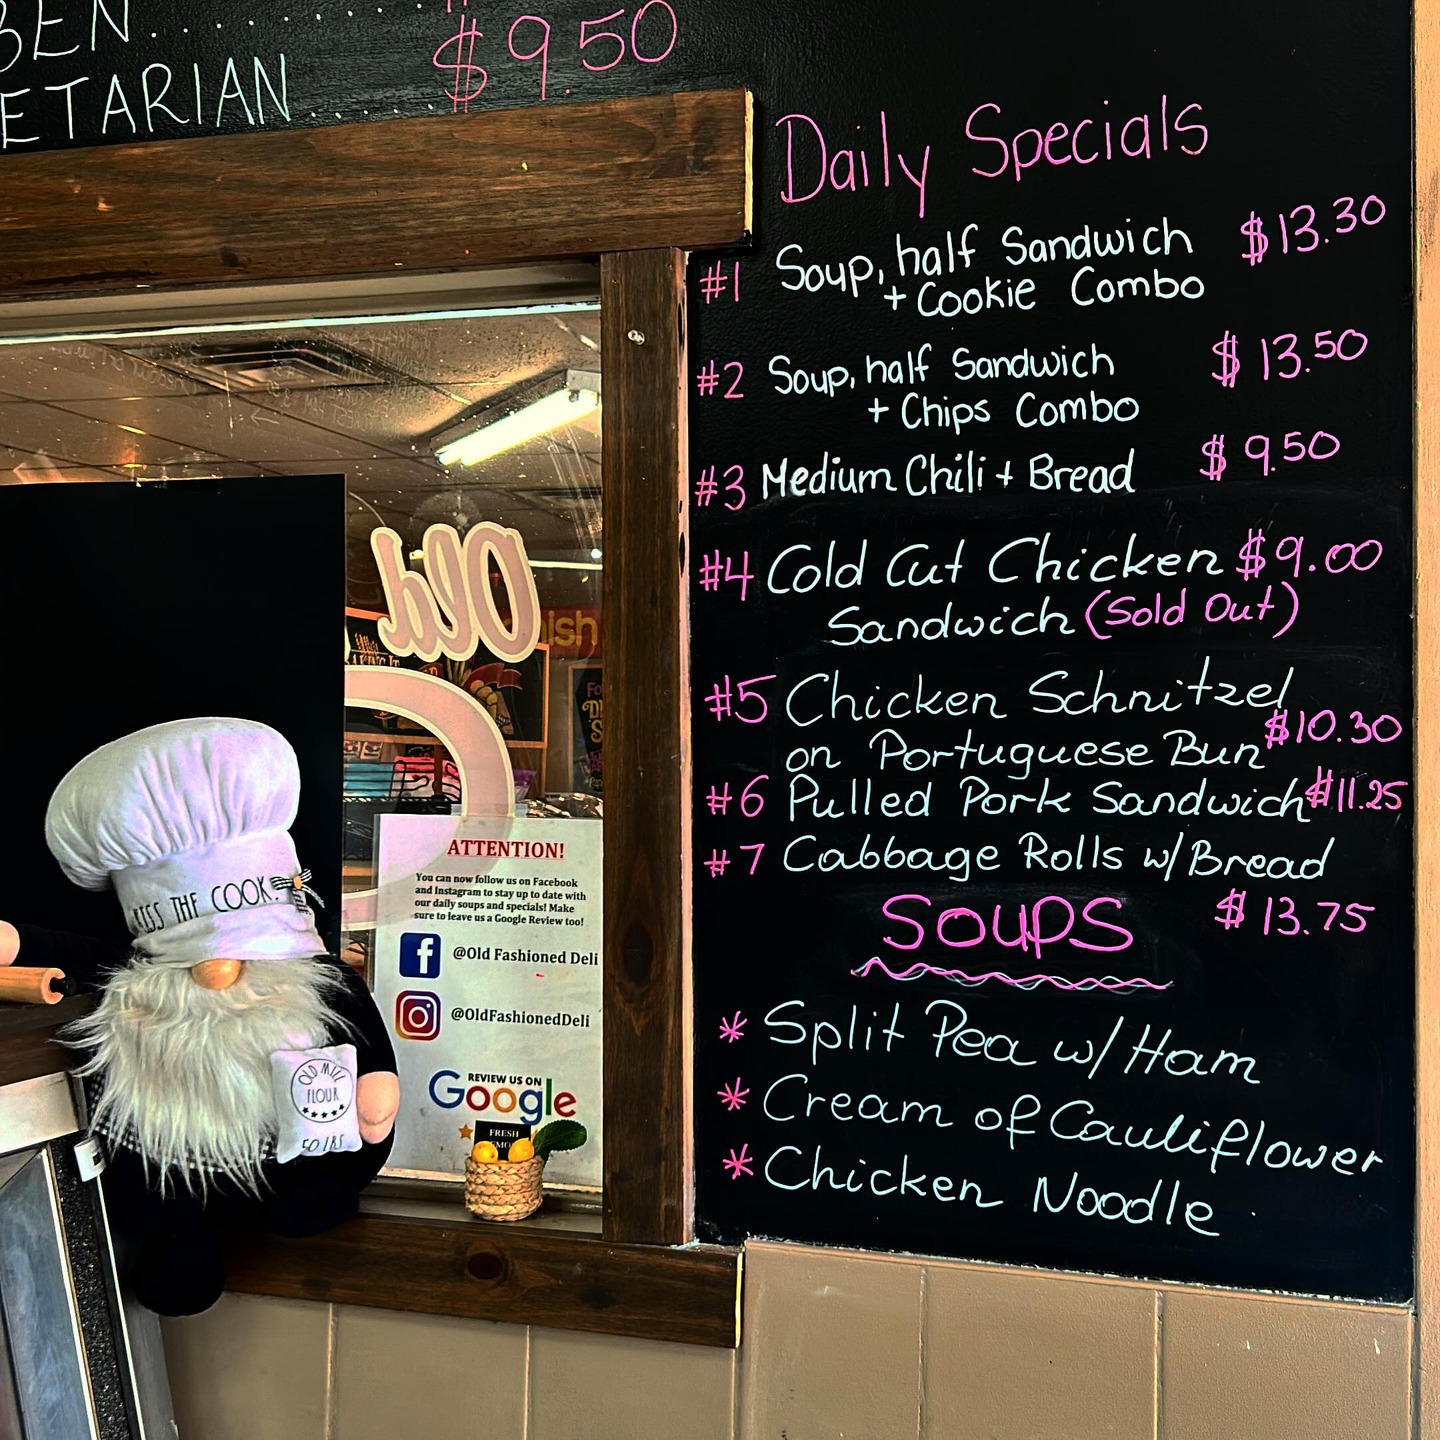 $9.50
ETARIAN......
Daily Specials
#1 Soup, half Sandwich $13.30
+ Cookie Combo
#2 Soup, half Sandwich $13.50
+ Chips Combo
#3 Medium Chili + Bread $9.50
#4 Cold Cut Chicken $9.00
Sandwich (Sold Out)
#5 Chicken Schnitzel
on Portuguese Bun $10.30
#6 Pulled Pork Sandwich $11.25
#7 Cabbage Rolls w/Bread
$13.75
SOUPS
* Split Pea w/ Ham
* Cream of Cauliflower
* Chicken Noodle
Old
ish
ATTENTION!
You can now follow us on Facebook
and Instagram to stay up to date with
our daily soups and specials! Make
sure to leave us a Google Review too!
@Old Fashioned Deli
@OldFashionedDeli
REVIEW US ON
Google
FRESH
THE COOK
OLD MILL
FLOUR
50 LBS